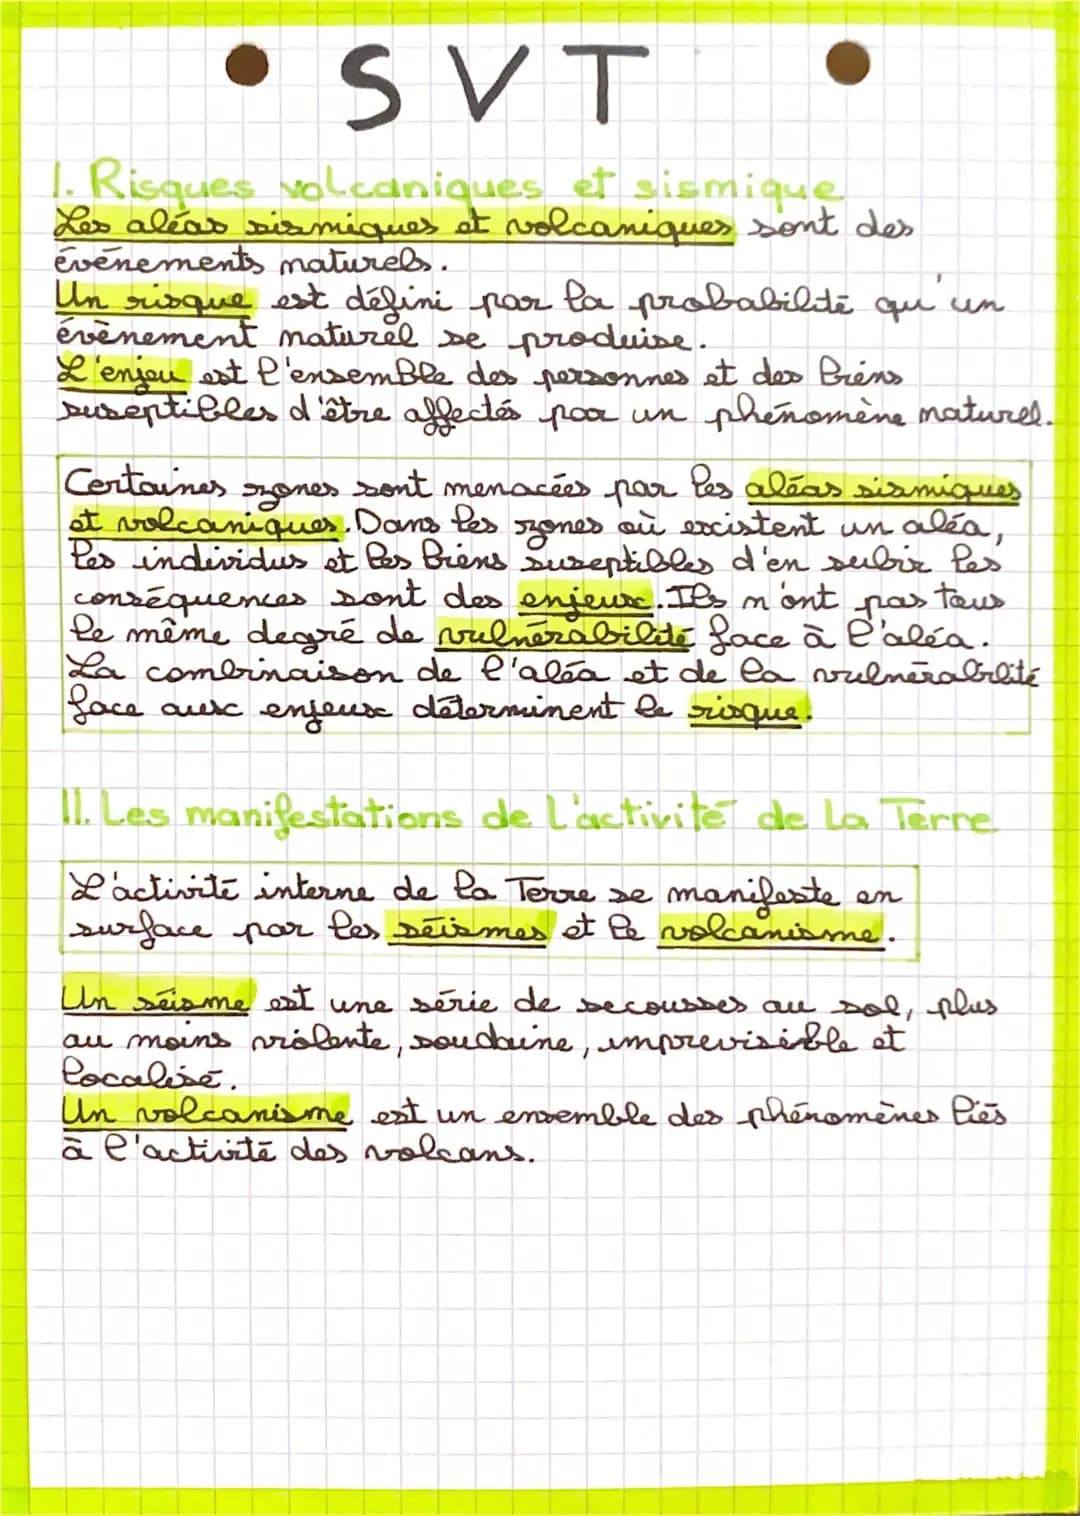 SVT
I. Risques volcaniques et sismique
Les aléas sismiques et volcaniques sont des
événements naturels.
Un risque est défini par la probabilité qu'un
évènement naturel se produise.
L'enjeu est l'ensemble des personnes et des biens
suseptibles d'être affectés par un phénomène naturel.
Certaines zones sont menacées par les aléas sismiques
et volcaniques. Dans les zones où existent un aléa,
les individus et les biens suseptibles d'en subir les
conséquences sont des enjeux. Ils n'ont pas tous
le même degré de vulnérabilité face à l'aléa.
La combinaison de l'aléa et de la vulnérabilité
face aux enjeux déterminent le risque.
II. Les manifestations de l'activité de la Terre
L'activité interne de la Terre se manifeste en
surface par les séismes et le volcanisme.
Un séisme est une série de secousses au sol, plus
au moins violente, soudaine, imprevisible et
localisé.
Un volcanisme est un ensemble des phénomènes liés
à l'activité des volcans.